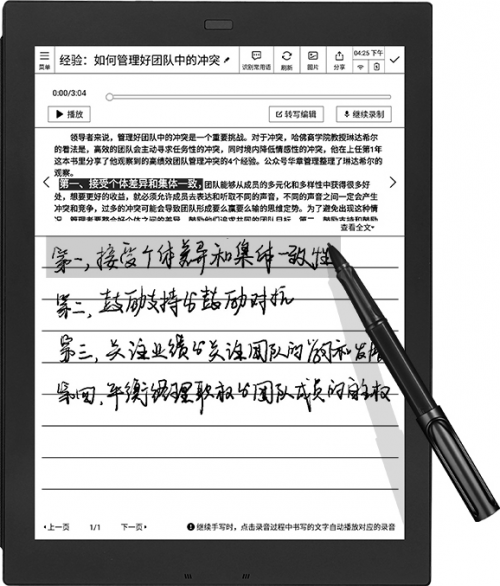 菜单
经验：如何管理好团队中的冲突
识别常用语
刷新
图片
分享
04:25 下午
0:00/3:04
播放
转写编辑
继续录制
领导者来说，管理好团队中的冲突是一个重要挑战。对于冲突，哈佛商学院教授琳达希尔
的看法是，高效的团队会主动寻求任务性的冲突，同时境内降低情感性的冲突，他在上任第1年
这本书里分享了他观察到的高绩效团队管理冲突的4个经验。公众号华章管理整理了琳达希尔的
观察。
第一、接受个体差异和集体一致，团队能够从成员的多元化和多样性中获得很多好
处，想要更好的收益，就必须允许成员去表达和听取不同的声音，不同的声音之间一定会产生
冲突和竞争，过多的冲突可能会导致团队形成要么赢要么输的思维定势。为了避免出现这种情
查看全文
第一，接受个体差异和集体一致性
第二，鼓励支持与鼓励对抗
第三，关注业绩与关注团队的学习和发展
第四，平衡管理职权与团队成员的自主权
上一页
1/1
下一页
继续手写时，点击录音过程中书写的文字自动播放对应的录音